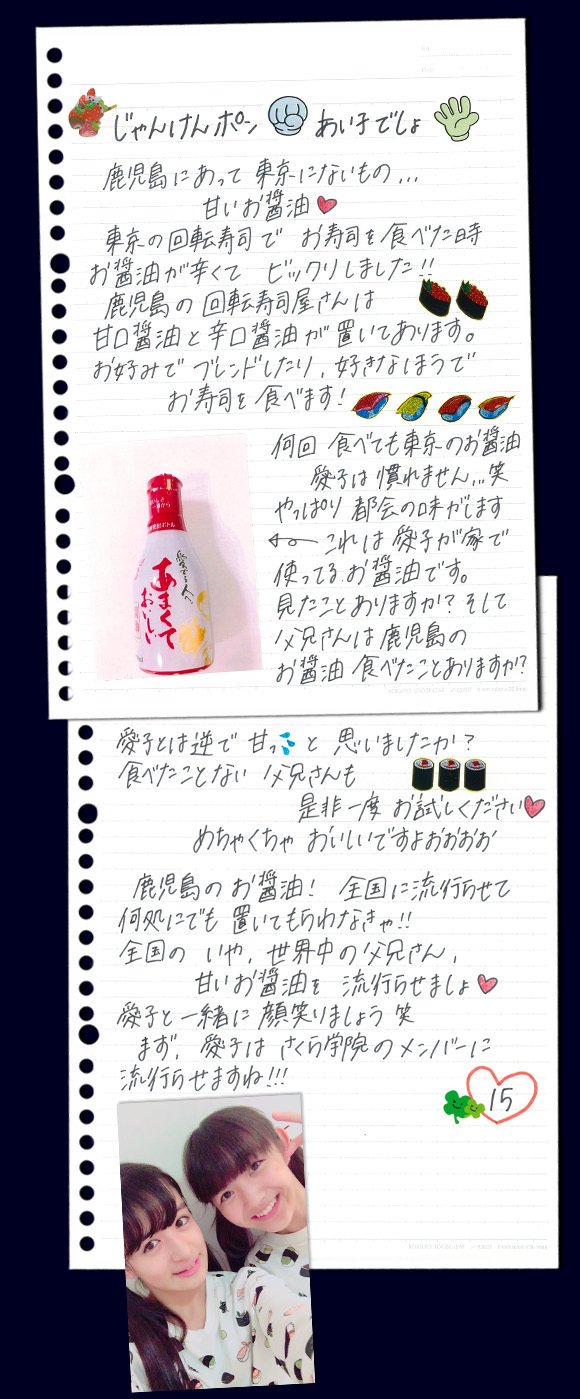 じゃんけんポン あい子でしょ
鹿児島にあって 東京にないもの...
甘いお醤油
東京の回転寿司で お寿司を食べた時
お醤油が辛くて ビックリしました!!
鹿児島の回転寿司屋さんは
甘口醤油と辛口醤油が置いてあります。
お好みでブレンドしたり、好きなほうで
お寿司を食べます!
何回 食べても東京のお醤油
愛子は慣れません...笑
やっぱり 都会の味がします
これは愛子が家で
使ってるお醤油です。
見たことありますか? そして
父兄さんは鹿児島の
お醤油 食べたことありますか?
あまくて
おいしい
愛子とは逆で 甘っ と 思いましたか?
食べたことない 父兄さんも
是非一度 お試しください
めちゃくちゃ おいしいですよおおおお
鹿児島の お醤油! 全国に流行らせて
何処にでも 置いてもらわなきゃ!!
全国の いや、世界中の父兄さん、
甘いお醤油を 流行らせましょ
愛子と一緒に 顔笑りましょう 笑
まず、愛子は さくら学院のメンバーに
流行らせますね!!!
15